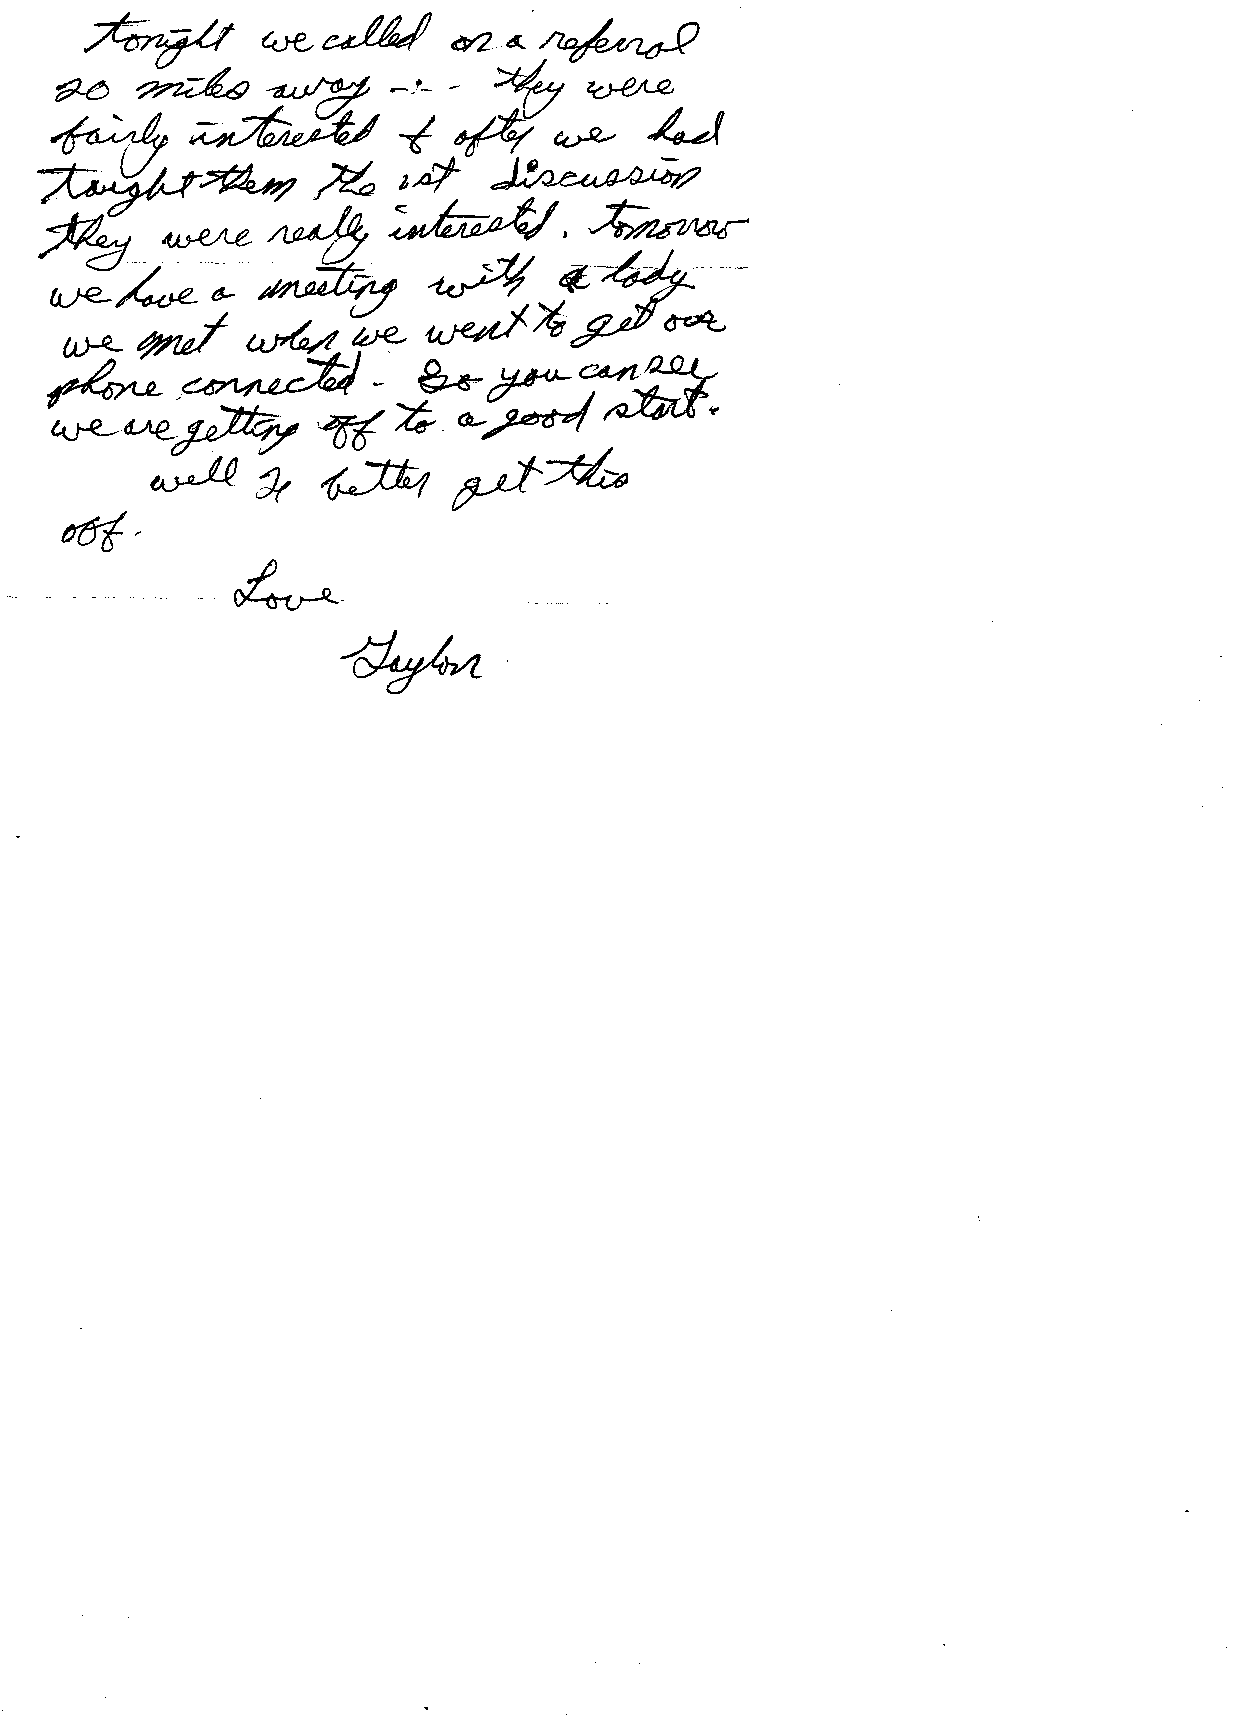 tonight we called on a referral
20 miles away --- they were
fairly interested & after we had
taught them the 1st discussion
they were really interested. tomorrow
we have a meeting with a lady
we met when we went to get our
phone connected - So you can see
we are getting off to a good start.
well I better get this
off.
Love
Gaylon